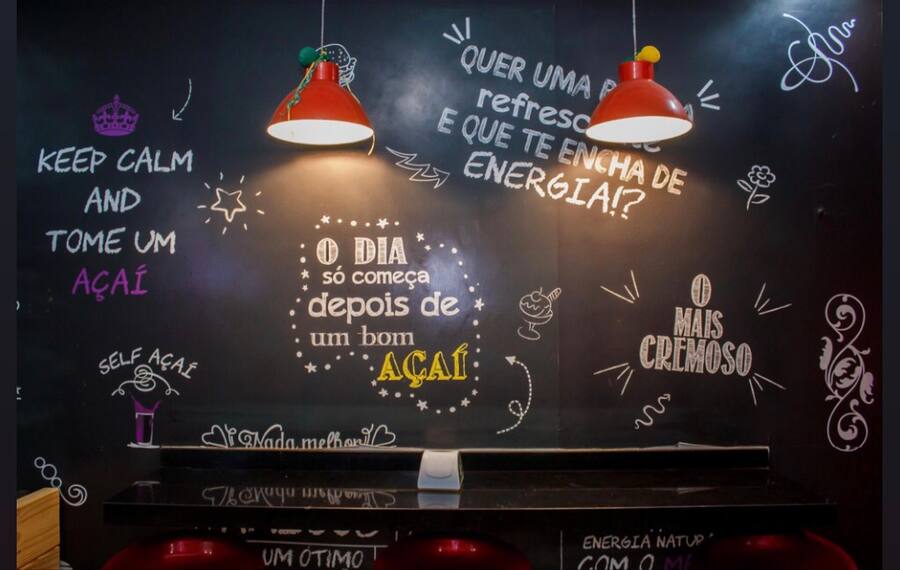 KEEP CALM
AND
TOME UM
AÇAÍ
QUER UMA
E QUE TE ENCHA DE
ENERGIA!?
O DIA
só começa
depois de
um bom
AÇAÍ
O
MAIS
CREMOSO
SELF AÇAÍ
Nada melhor
UM ÓTIMO
ENERGIA
COM O